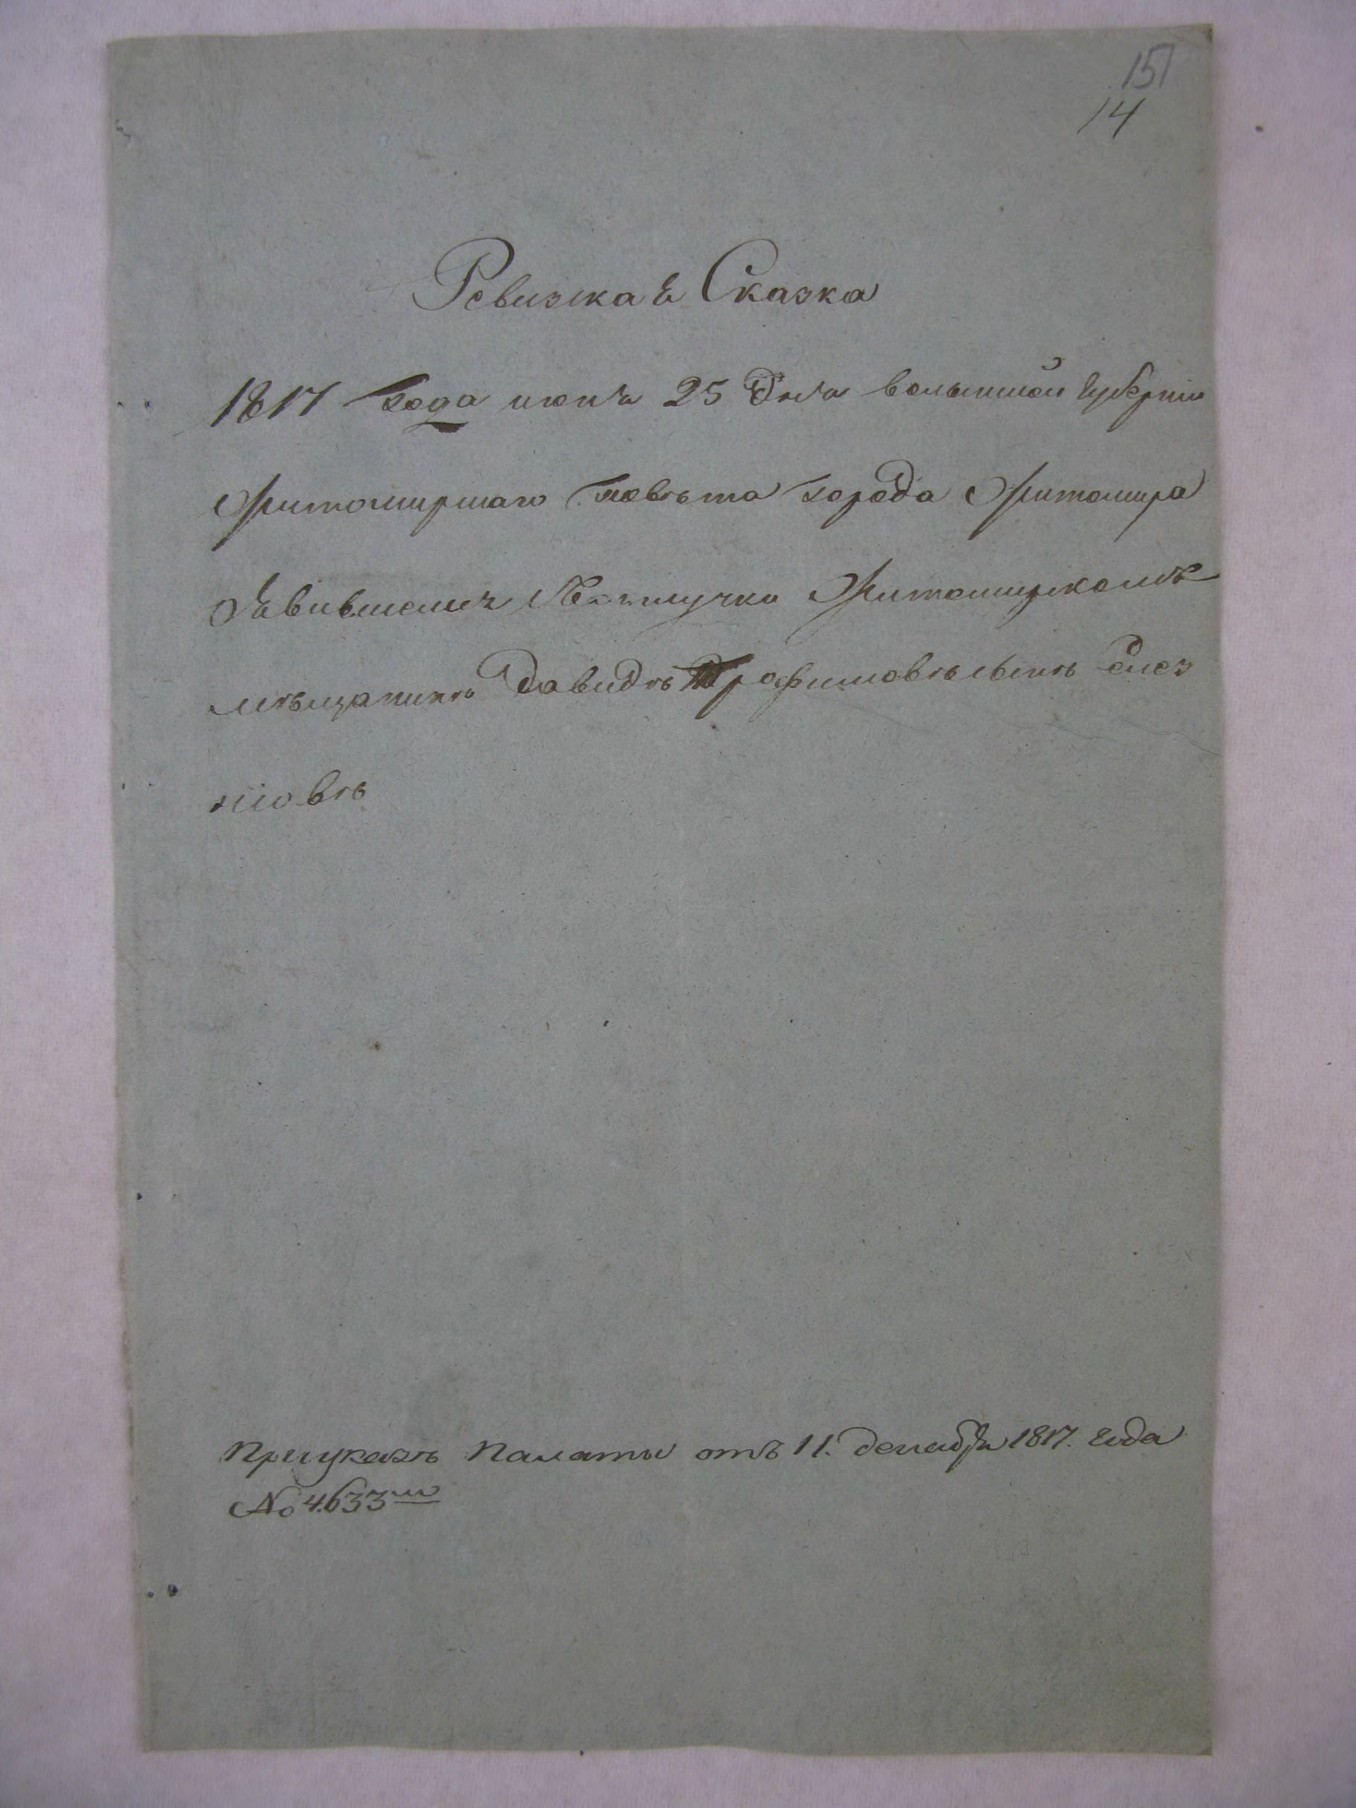 151
14
Ревизкая Сказка
1817 года июня 25 дня волынской губернии
Житомирскаго повѣта города Житомира
Явившемся житомирскомъ
мѣщанинъ Давидъ Трофимовъ сынъ
новъ
При указѣ Палаты отъ 11. декабря 1817. года
№ 4633мъ